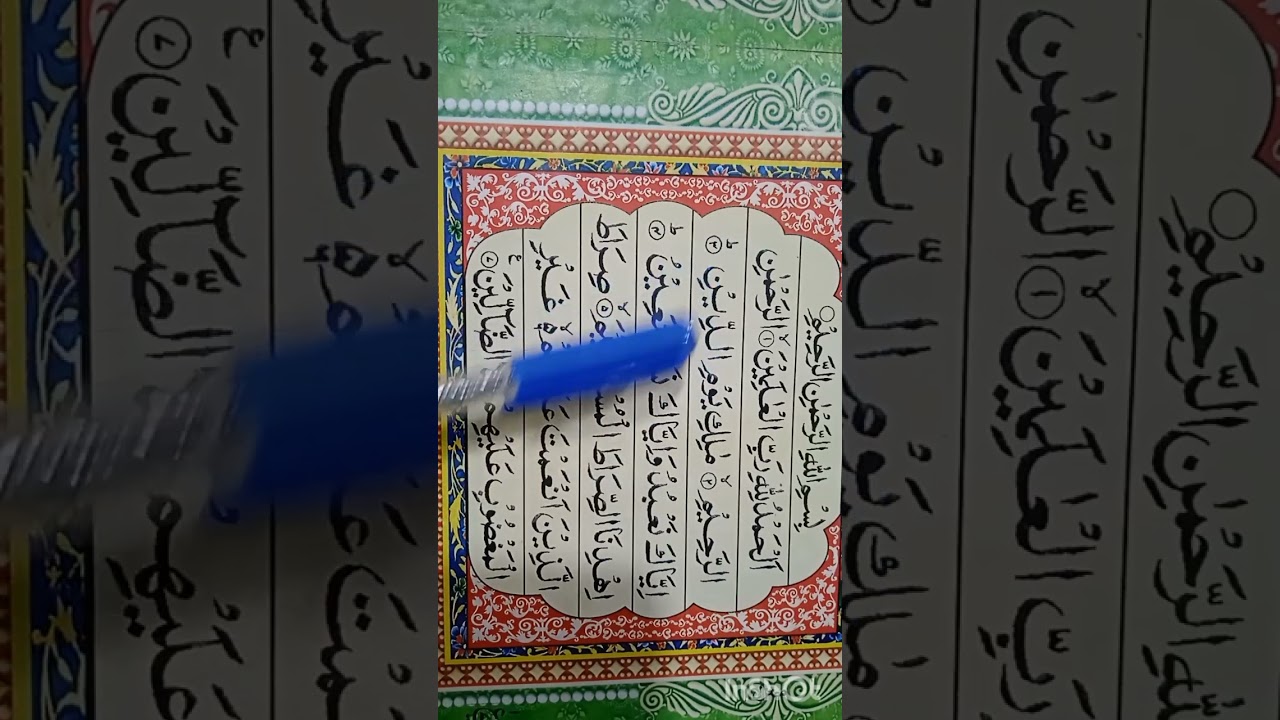 بِسْمِ اللهِ الرَّحْمٰنِ الرَّحِيْمِ ○
اَلْحَمْدُ لِلّٰهِ رَبِّ الْعٰلَمِيْنَ ۙ ١ الرَّحْمٰنِ
الرَّحِيْمِ ۙ ٢ مٰلِكِ يَوْمِ الدِّيْنِ ؕ ٣
اِيَّاكَ نَعْبُدُ وَاِيَّاكَ ؕ ٤
اِهْدِنَا الصِّرَاطَ ۙ ٥ صِرَاطَ
الَّذِيْنَ اَنْعَمْتَ غَيْرِ
الْمَغْضُوْبِ عَلَيْهِمْ الضَّآلِّيْنَ ۧ ٧